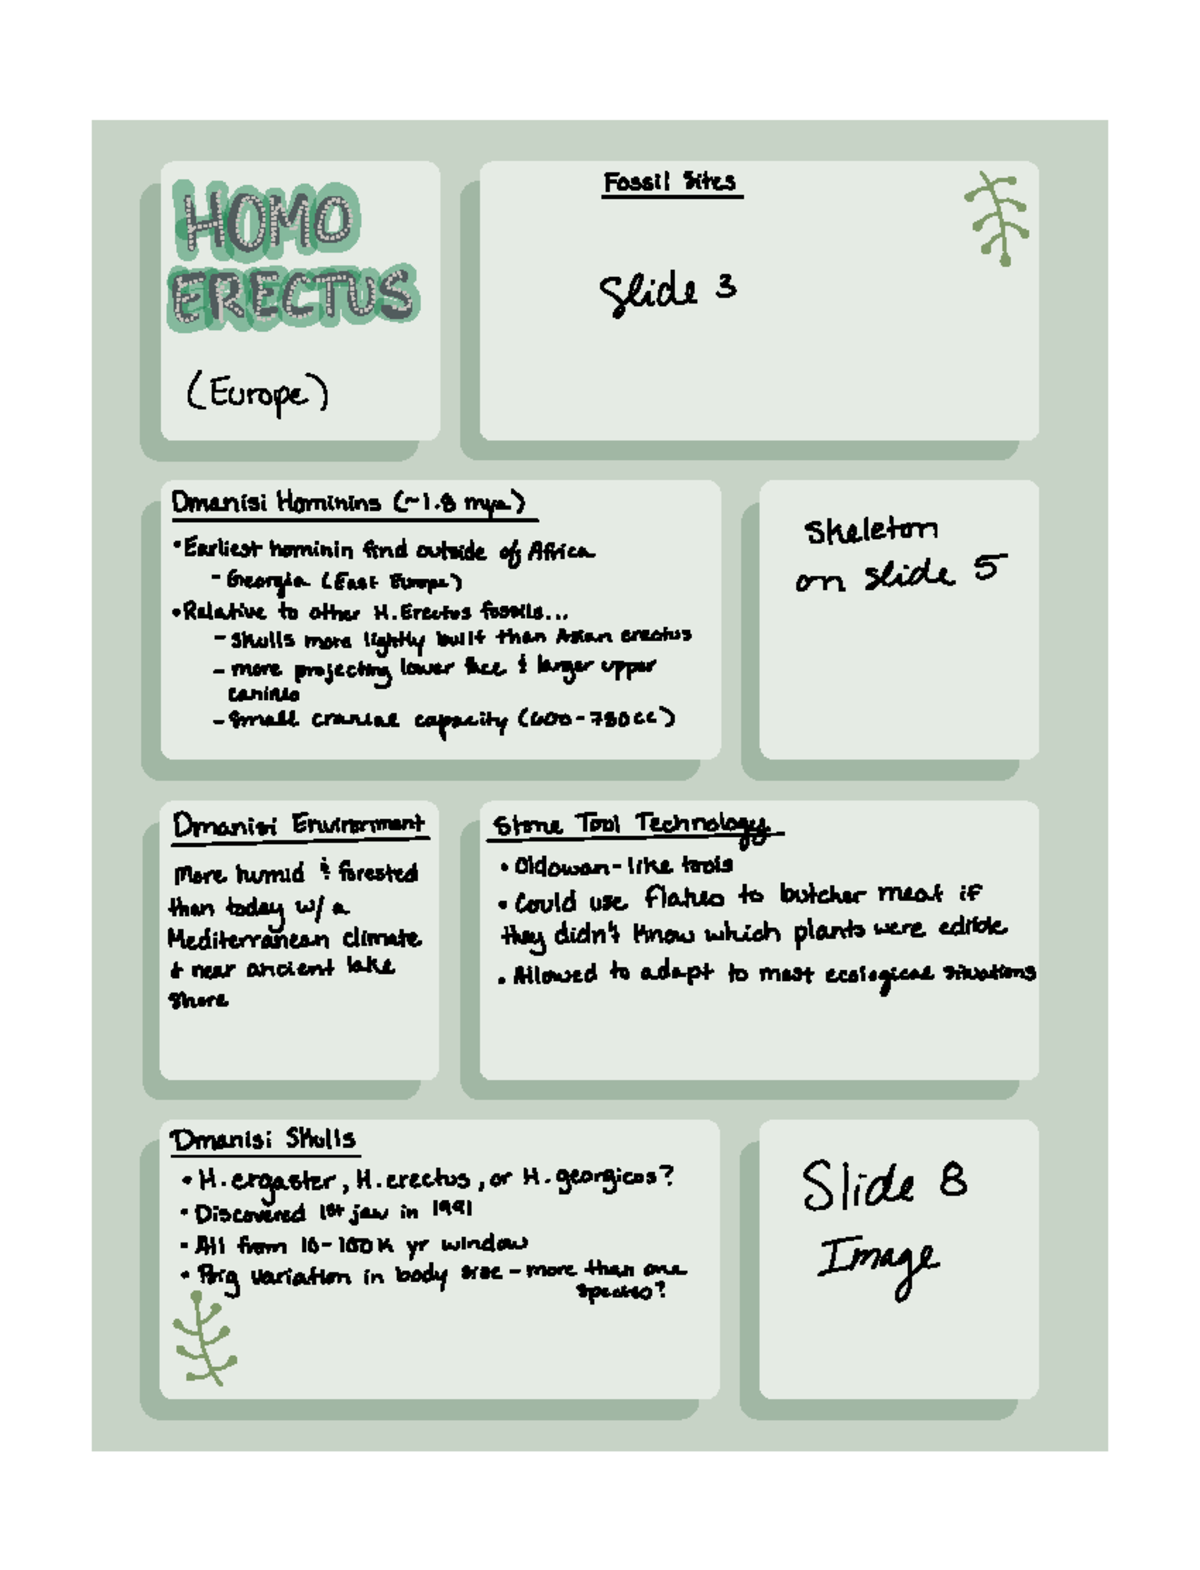 HOMO
ERECTUS
(Europe)
Fossil Sites
Slide 3
Dmanisi Hominins (~1.8 mya)
• Earliest hominin find outside of Africa
- Georgia (East Europe)
• Relative to other H. Erectus fossils...
- Skulls more lightly built than Asian erectus
- more projecting lower face & larger upper
canines
- Small cranial capacity (600-780cc)
Skeleton
on slide 5
Dmanisi Environment
More humid & forested
than today w/ a
Mediterranean climate
& near ancient lake
shore
Stone Tool Technology
• Oldowan-like tools
• Could use flakes to butcher meat if
they didn't know which plants were edible
• Allowed to adapt to most ecological situations
Dmanisi Skulls
• H. ergaster, H. erectus, or H. georgicus?
• Discovered 1st jaw in 1991
• All from 10-100K yr window
• Big variation in body size - more than one
species?
Slide 8
Image